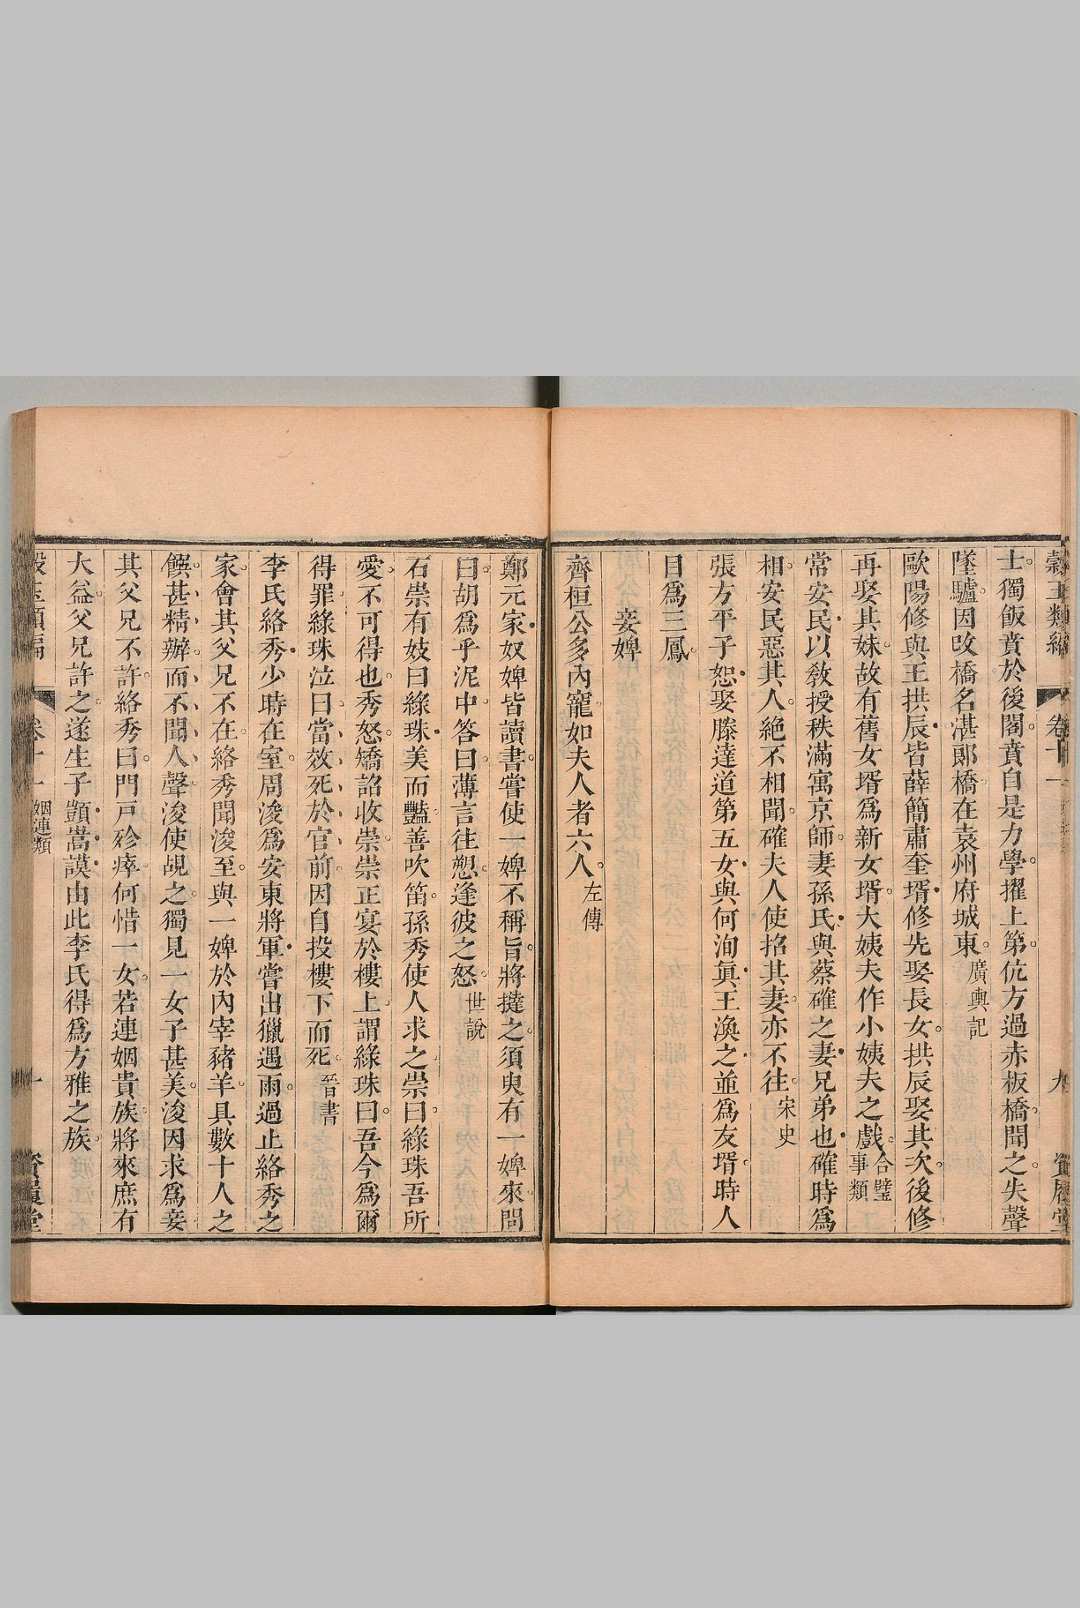 穀玉類編 卷十一 九
士獨飯賁於後閣賁自是力學擢上第伉方過赤板橋聞之失聲
墜驢因改橋名湛郞橋在袁州府城東 廣輿記
歐陽修與王拱辰皆薛簡肅奎壻修先娶長女拱辰娶其次後修
再娶其妹故有舊女壻爲新女壻大姨夫作小姨夫之戲 合璧事類
常安民以敎授秩滿寓京師妻孫氏與蔡確之妻兄弟也確時爲
相安民惡其人絶不相聞確夫人使招其妻亦不往 宋史
張方平子恕娶滕達道第五女與何洵眞王渙之並爲友壻時人
目爲三鳳
妾婢
齊桓公多內寵如夫人者六人 左傳
鄭元家奴婢皆讀書嘗使一婢不稱旨將撻之須臾有一婢來問
曰胡爲乎泥中答曰薄言往愬逢彼之怒 世說
石崇有妓曰綠珠美而豔善吹笛孫秀使人求之崇曰綠珠吾所
愛不可得也秀怒矯詔收崇崇正宴於樓上謂綠珠曰吾今爲爾
得罪綠珠泣曰當效死於官前因自投樓下而死 晉書
李氏絡秀少時在室周浚爲安東將軍嘗出獵遇雨過止絡秀之
家會其父兄不在絡秀聞浚至與一婢於內宰豬羊具數十人之
饌甚精辦而不聞人聲浚使覘之獨見一女子甚美浚因求爲妾
其父兄不許絡秀曰門戸殄瘁何惜一女若連姻貴族將來庶有
大益父兄許之遂生子顗嵩謨由此李氏得爲方雅之族
卷十一 姻連類